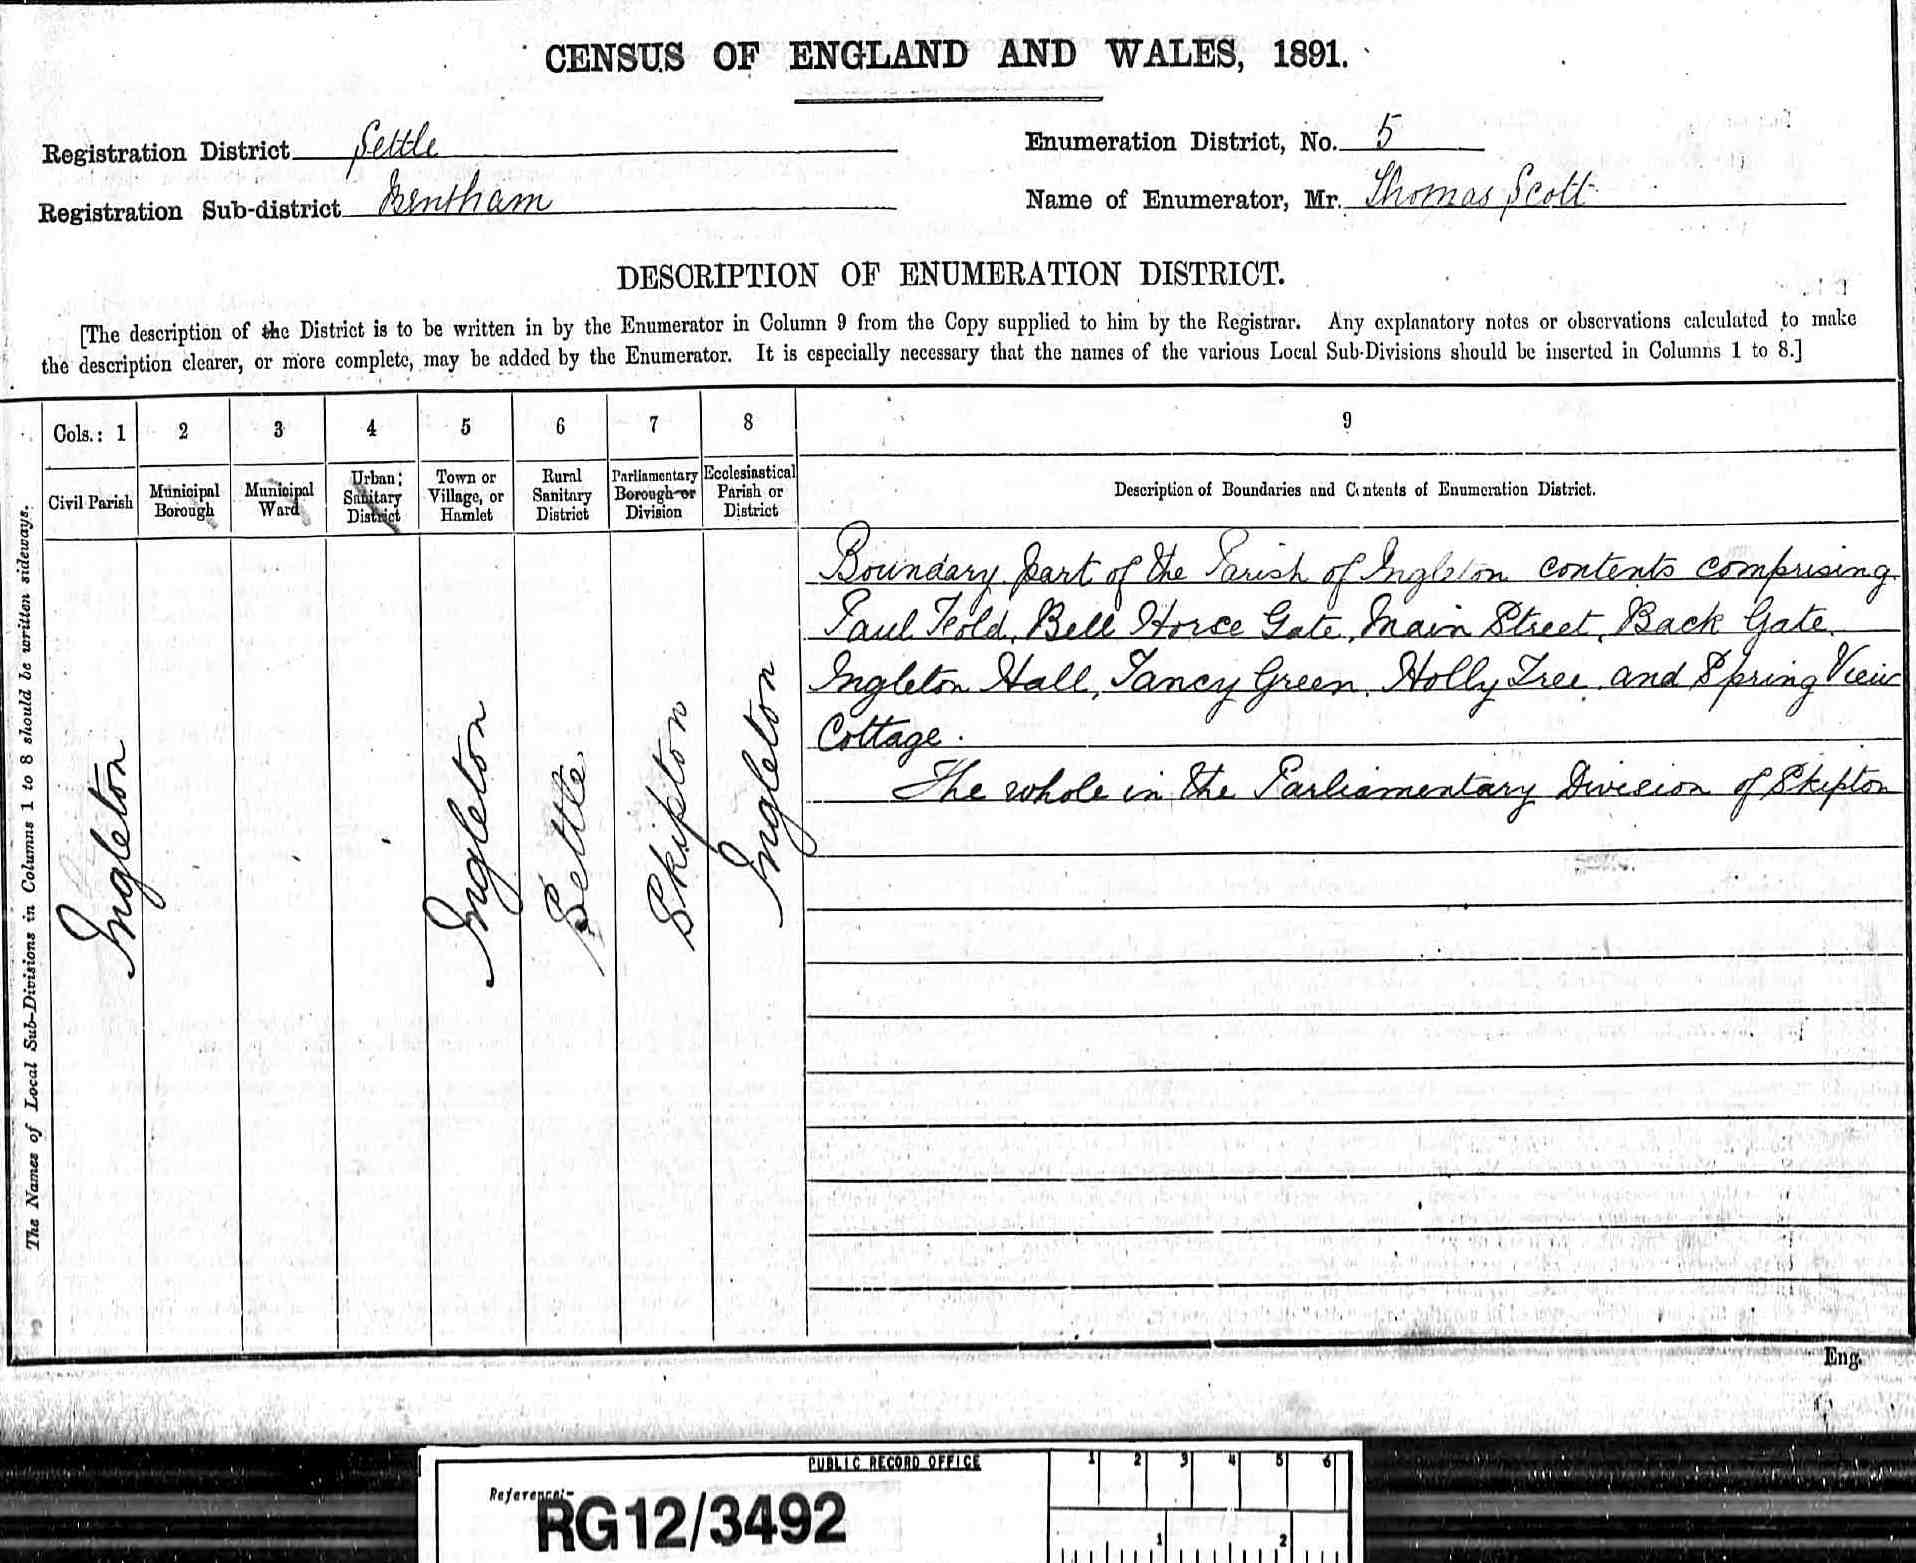 CENSUS OF ENGLAND AND WALES, 1891.
Registration District Settle
Enumeration District, No. 5
Registration Sub-district Bentham
Name of Enumerator, Mr. Thomas Scott
DESCRIPTION OF ENUMERATION DISTRICT.
[The description of the District is to be written in by the Enumerator in Column 9 from the Copy supplied to him by the Registrar. Any explanatory notes or observations calculated to make
the description clearer, or more complete, may be added by the Enumerator. It is especially necessary that the names of the various Local Sub-Divisions should be inserted in Columns 1 to 8.]
Cols.: 1 2 3 4 5 6 7 8 9
Civil Parish
Municipal Borough
Municipal Ward
Urban Sanitary District
Town or Village, or Hamlet
Rural Sanitary District
Parliamentary Borough or Division
Ecclesiastical Parish or District
Description of Boundaries and Contents of Enumeration District.
The Names of Local Sub-Divisions in Columns 1 to 8 should be written sideways.
Ingleton
Ingleton
Settle
Skipton
Ingleton
Boundary part of the Parish of Ingleton contents comprising
Paul Fold, Bell Horse Gate, Main Street, Back Gate,
Ingleton Hall, Tancy Green, Holly Tree, and Spring View
Cottage.
The whole in the Parliamentary Division of Skipton
Eng.
PUBLIC RECORD OFFICE
Reference:-
RG12/3492
1 2 3 4 5 6
1 2